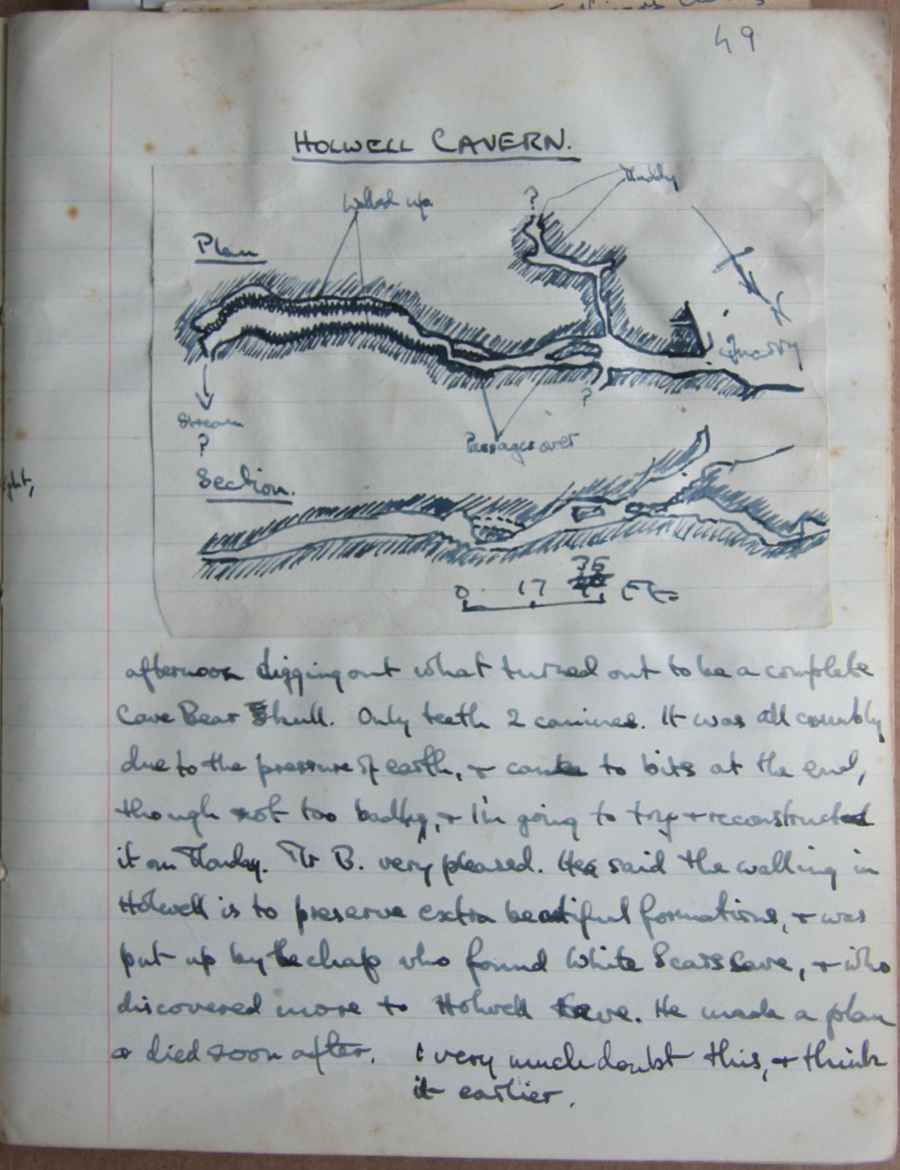 49
HOLWELL CAVERN.
Muddy
?
Walled up
Plan
Quarry
Stream
?
?
Passages over
Section.
0 17 35 Ft
ght,
afternoon digging out what turned out to be a complete
Cave Bear Skull. Only teeth 2 canines. It was all crumbly
due to the pressure of earth, & came to bits at the end,
though not too badly, & I'm going to try & reconstruct
it on Monday. Mr B. very pleased. He said the walling in
Holwell is to preserve extra beautiful formations, & was
put up by the chap who found White Scars Cave, & who
discovered more to Holwell Cave. He made a plan
& died soon after. I very much doubt this, & think
it earlier.